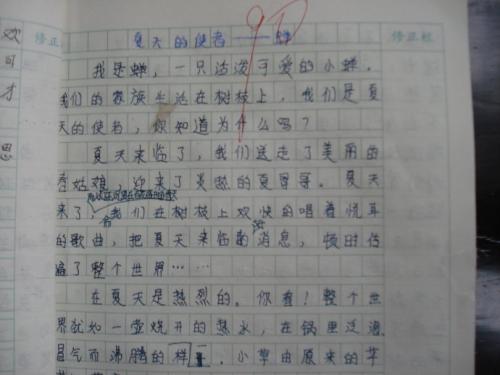 欢
可
才
思
修正栏
修正栏
90
夏天的使者——蝉
我是蝉，一只活泼可爱的小蝉。
我们的家族生活在树枝上，我们是夏
天的使者，你知道为什么吗？
夏天来临了，我们送走了美丽的
春姑娘，迎来了炎热的夏哥哥。夏天
来了，我们在树枝上欢快的唱着悦耳
的歌曲，把夏天来临的消息，顿时传
遍了整个世界……
在夏天是热烈的。你看！整个世
界就如一壶烧开的热水，在锅里泛泡
冒气而沸腾的样 小草由原来的